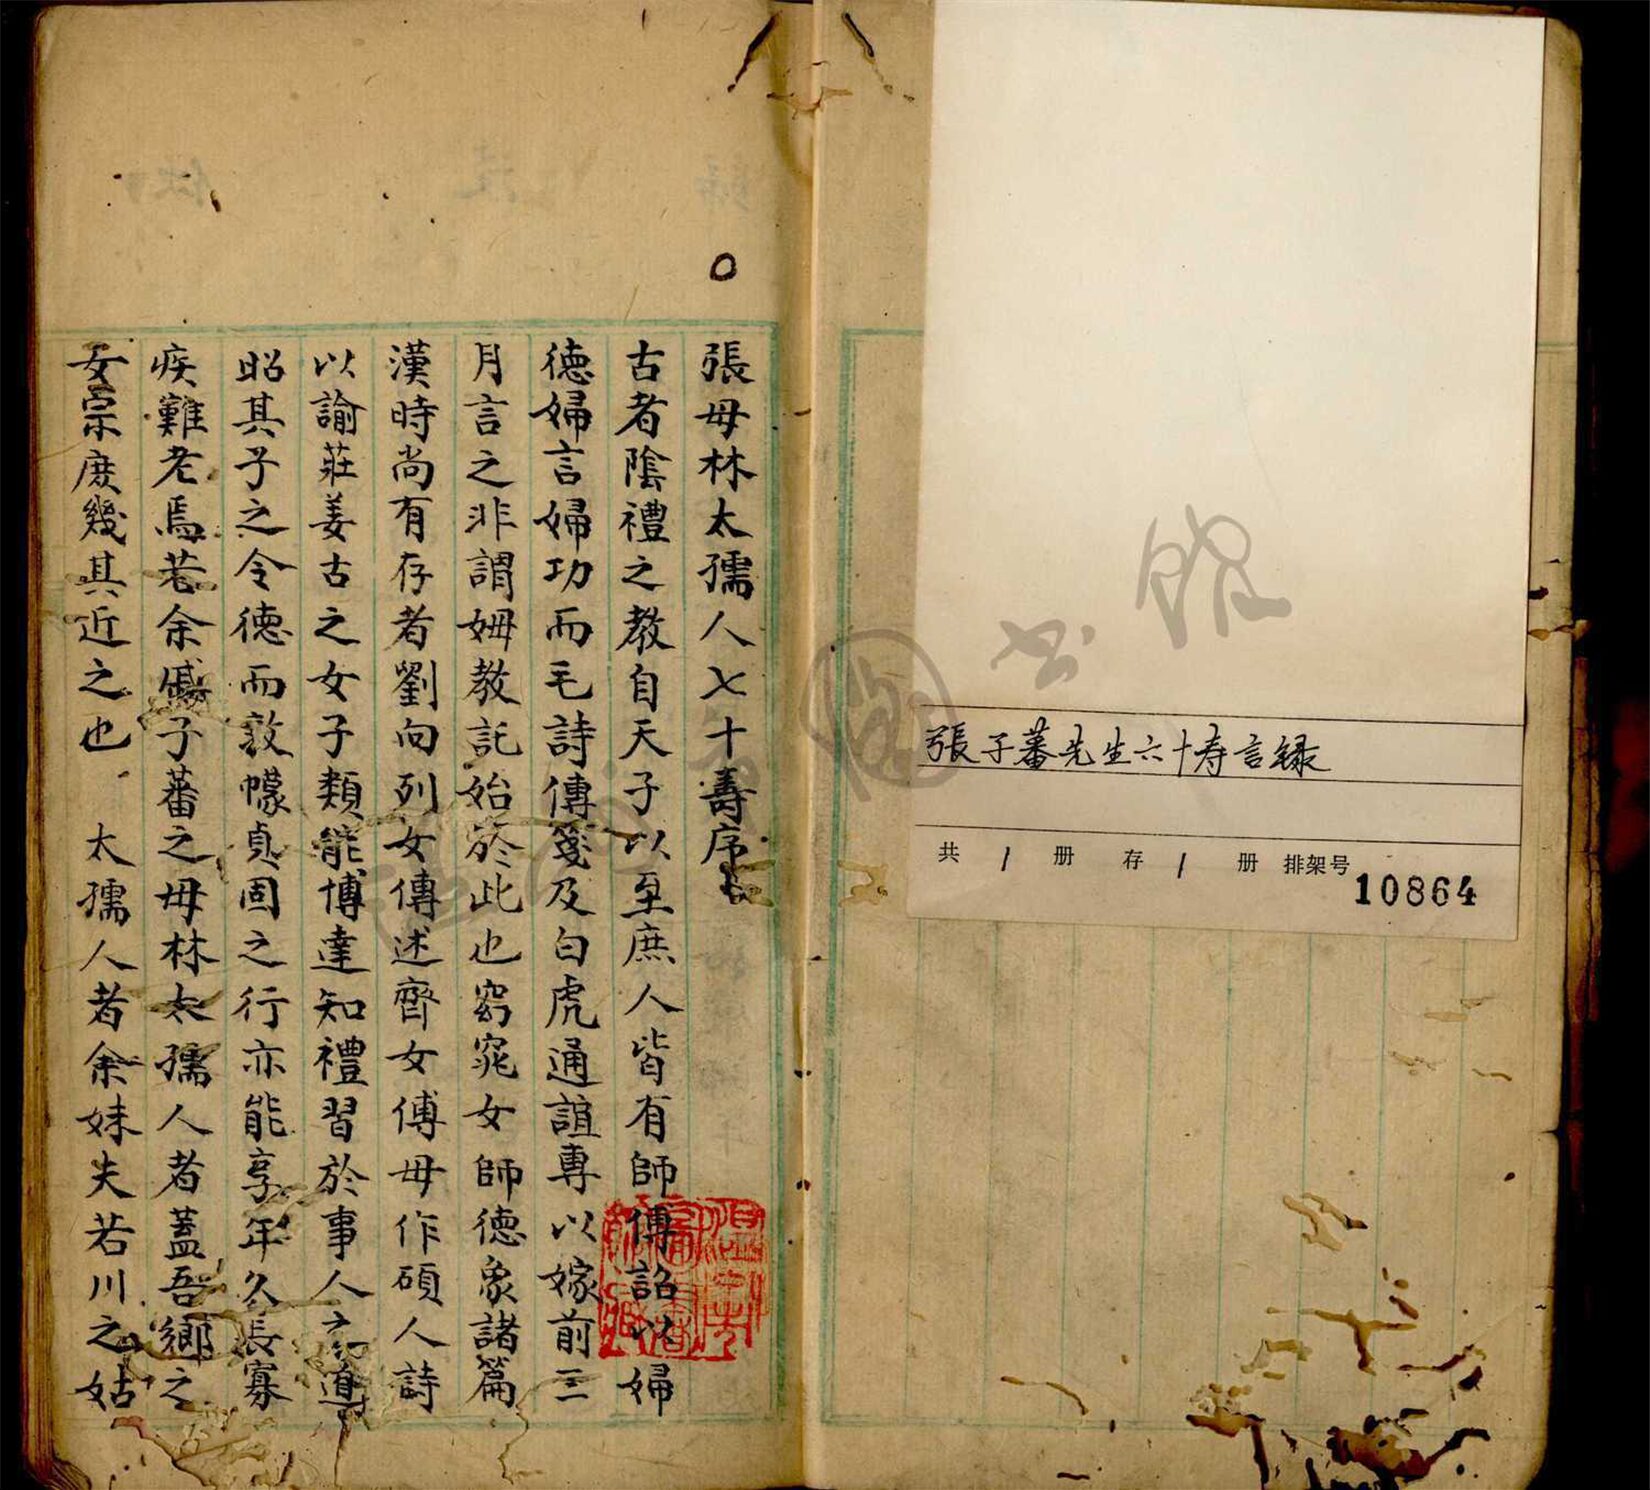 張子蕃先生六十寿言録
共 1 册 存 1 册 排架号 10864
張母林太孺人七十壽序
古者陰禮之教自天子以至庶人皆有師傅詔以婦
德婦言婦功而毛詩傳箋及白虎通誼專以嫁前三
月言之非謂姆教託始於此也窈窕女師德象諸篇
漢時尚有存者劉向列女傳述齊女傅母作碩人詩
以諭莊姜古之女子類能博達知禮習於事人之道
昭其子之令德而敦幪貞固之行亦能享年久長寡
疾難老焉若余戚子蕃之母林太孺人者蓋吾鄉之
女宗庶幾其近之也 太孺人者余妹夫若川之姑